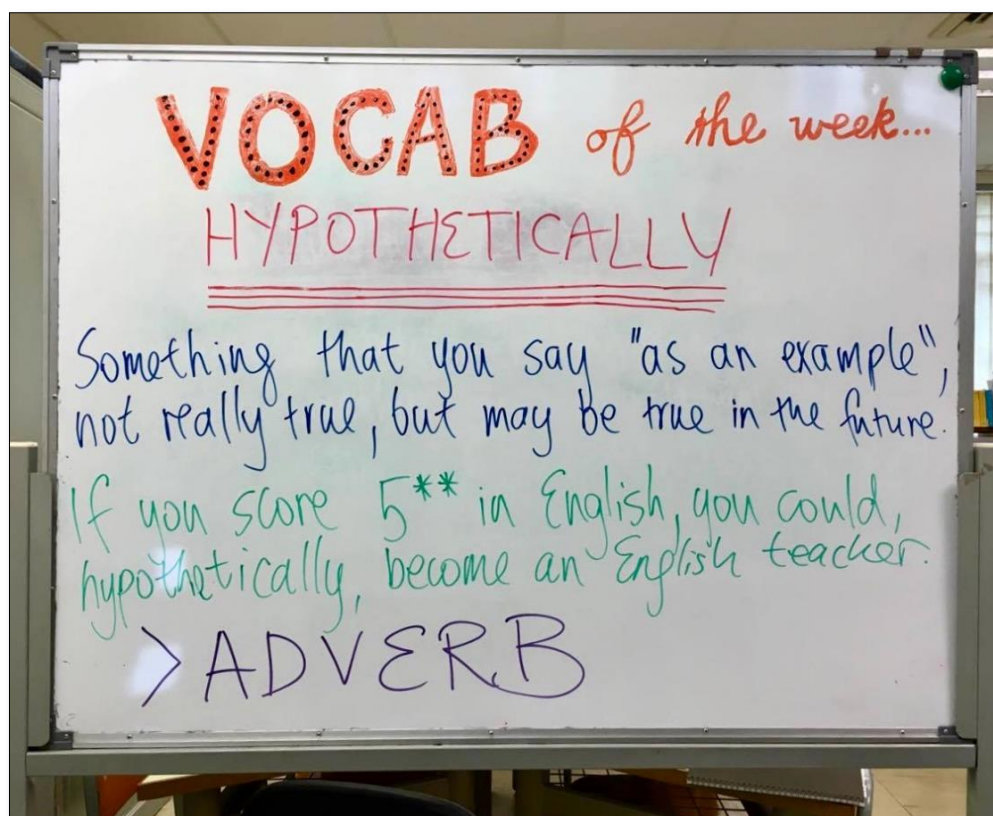 VOCAB of the week...
HYPOTHETICALLY
Something that you say "as an example",
not really true, but may be true in the future.
If you score 5** in English, you could,
hypothetically, become an English teacher.
> ADVERB